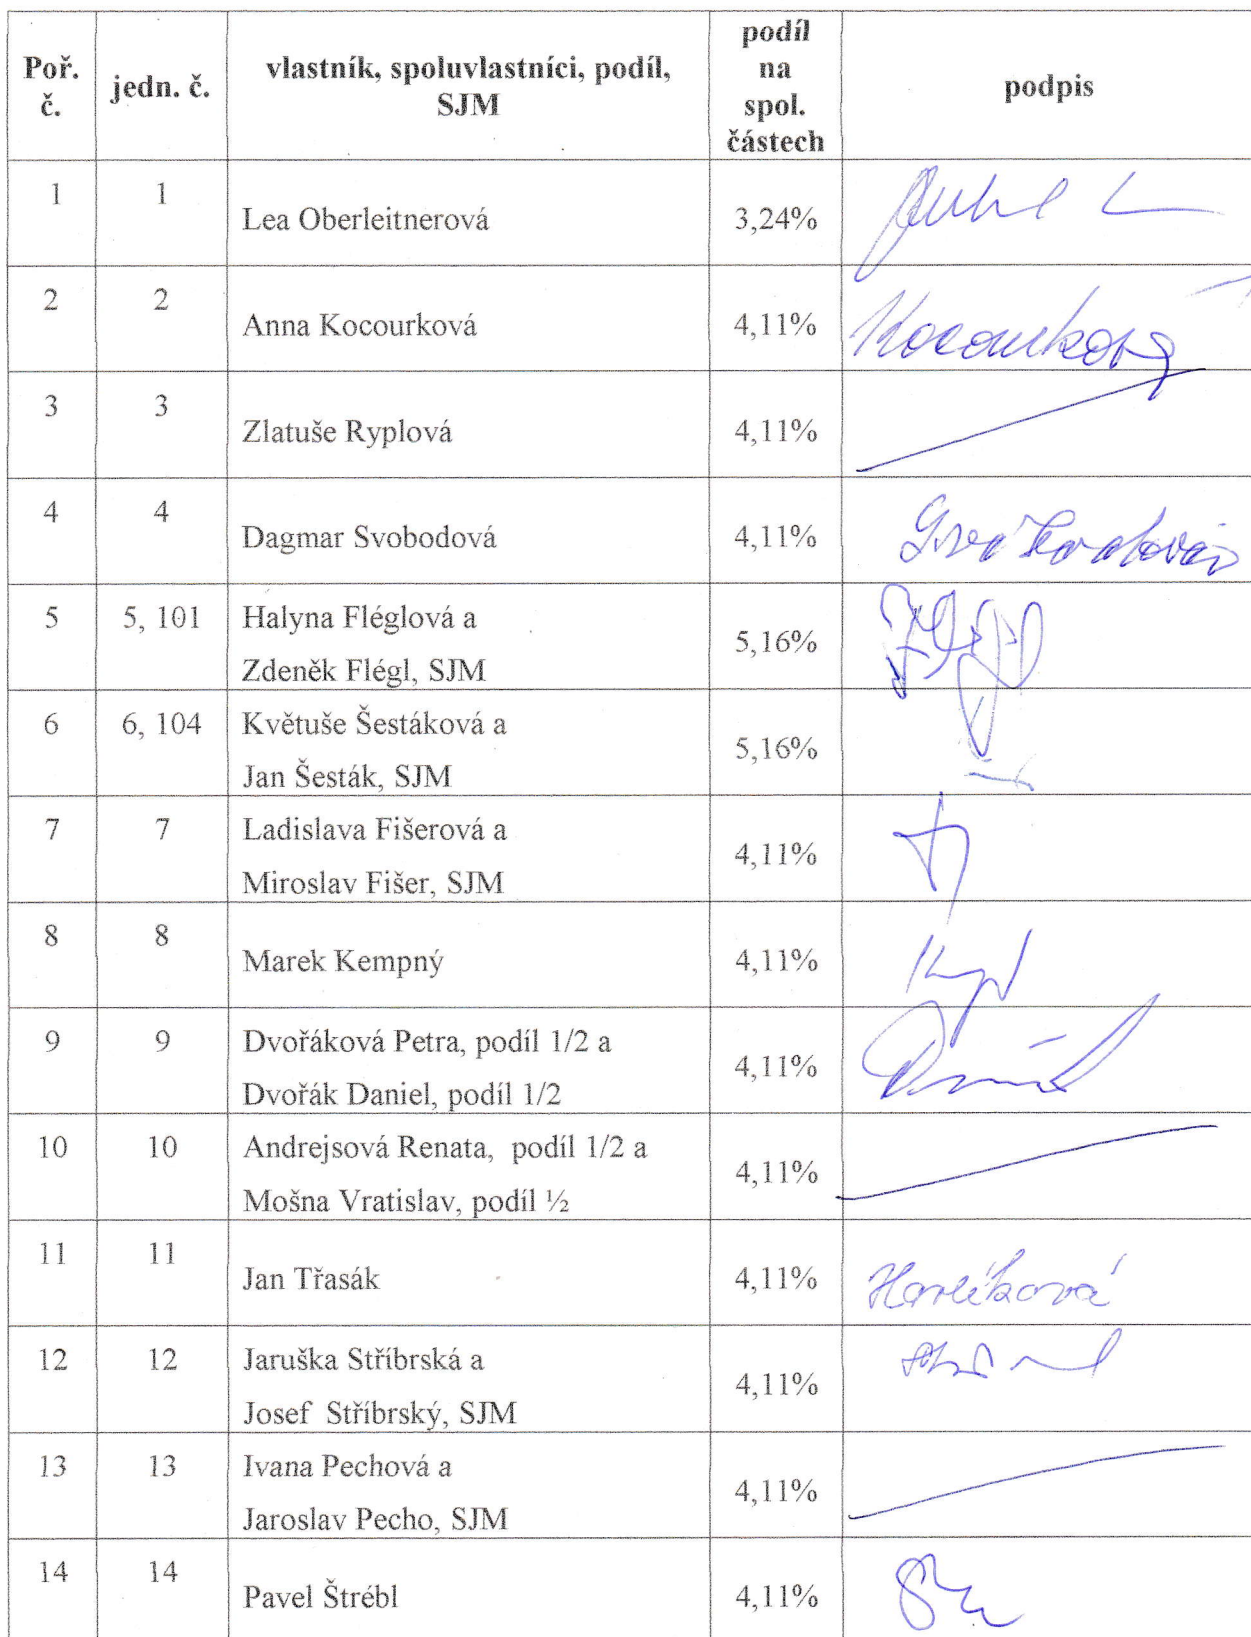 Poř. č. jedn. č. vlastník, spoluvlastníci, podíl, SJM podíl na spol. částech podpis
1 1 Lea Oberleitnerová 3,24%
2 2 Anna Kocourková 4,11% Kocourková
3 3 Zlatuše Ryplová 4,11%
4 4 Dagmar Svobodová 4,11%
5 5, 101 Halyna Fléglová a
Zdeněk Flégl, SJM 5,16%
6 6, 104 Květuše Šestáková a
Jan Šesták, SJM 5,16%
7 7 Ladislava Fišerová a
Miroslav Fišer, SJM 4,11%
8 8 Marek Kempný 4,11%
9 9 Dvořáková Petra, podíl 1/2 a
Dvořák Daniel, podíl 1/2 4,11%
10 10 Andrejsová Renata, podíl 1/2 a
Mošna Vratislav, podíl ½ 4,11%
11 11 Jan Třasák 4,11%
12 12 Jaruška Stříbrská a
Josef Stříbrský, SJM 4,11%
13 13 Ivana Pechová a
Jaroslav Pecho, SJM 4,11%
14 14 Pavel Štrébl 4,11%